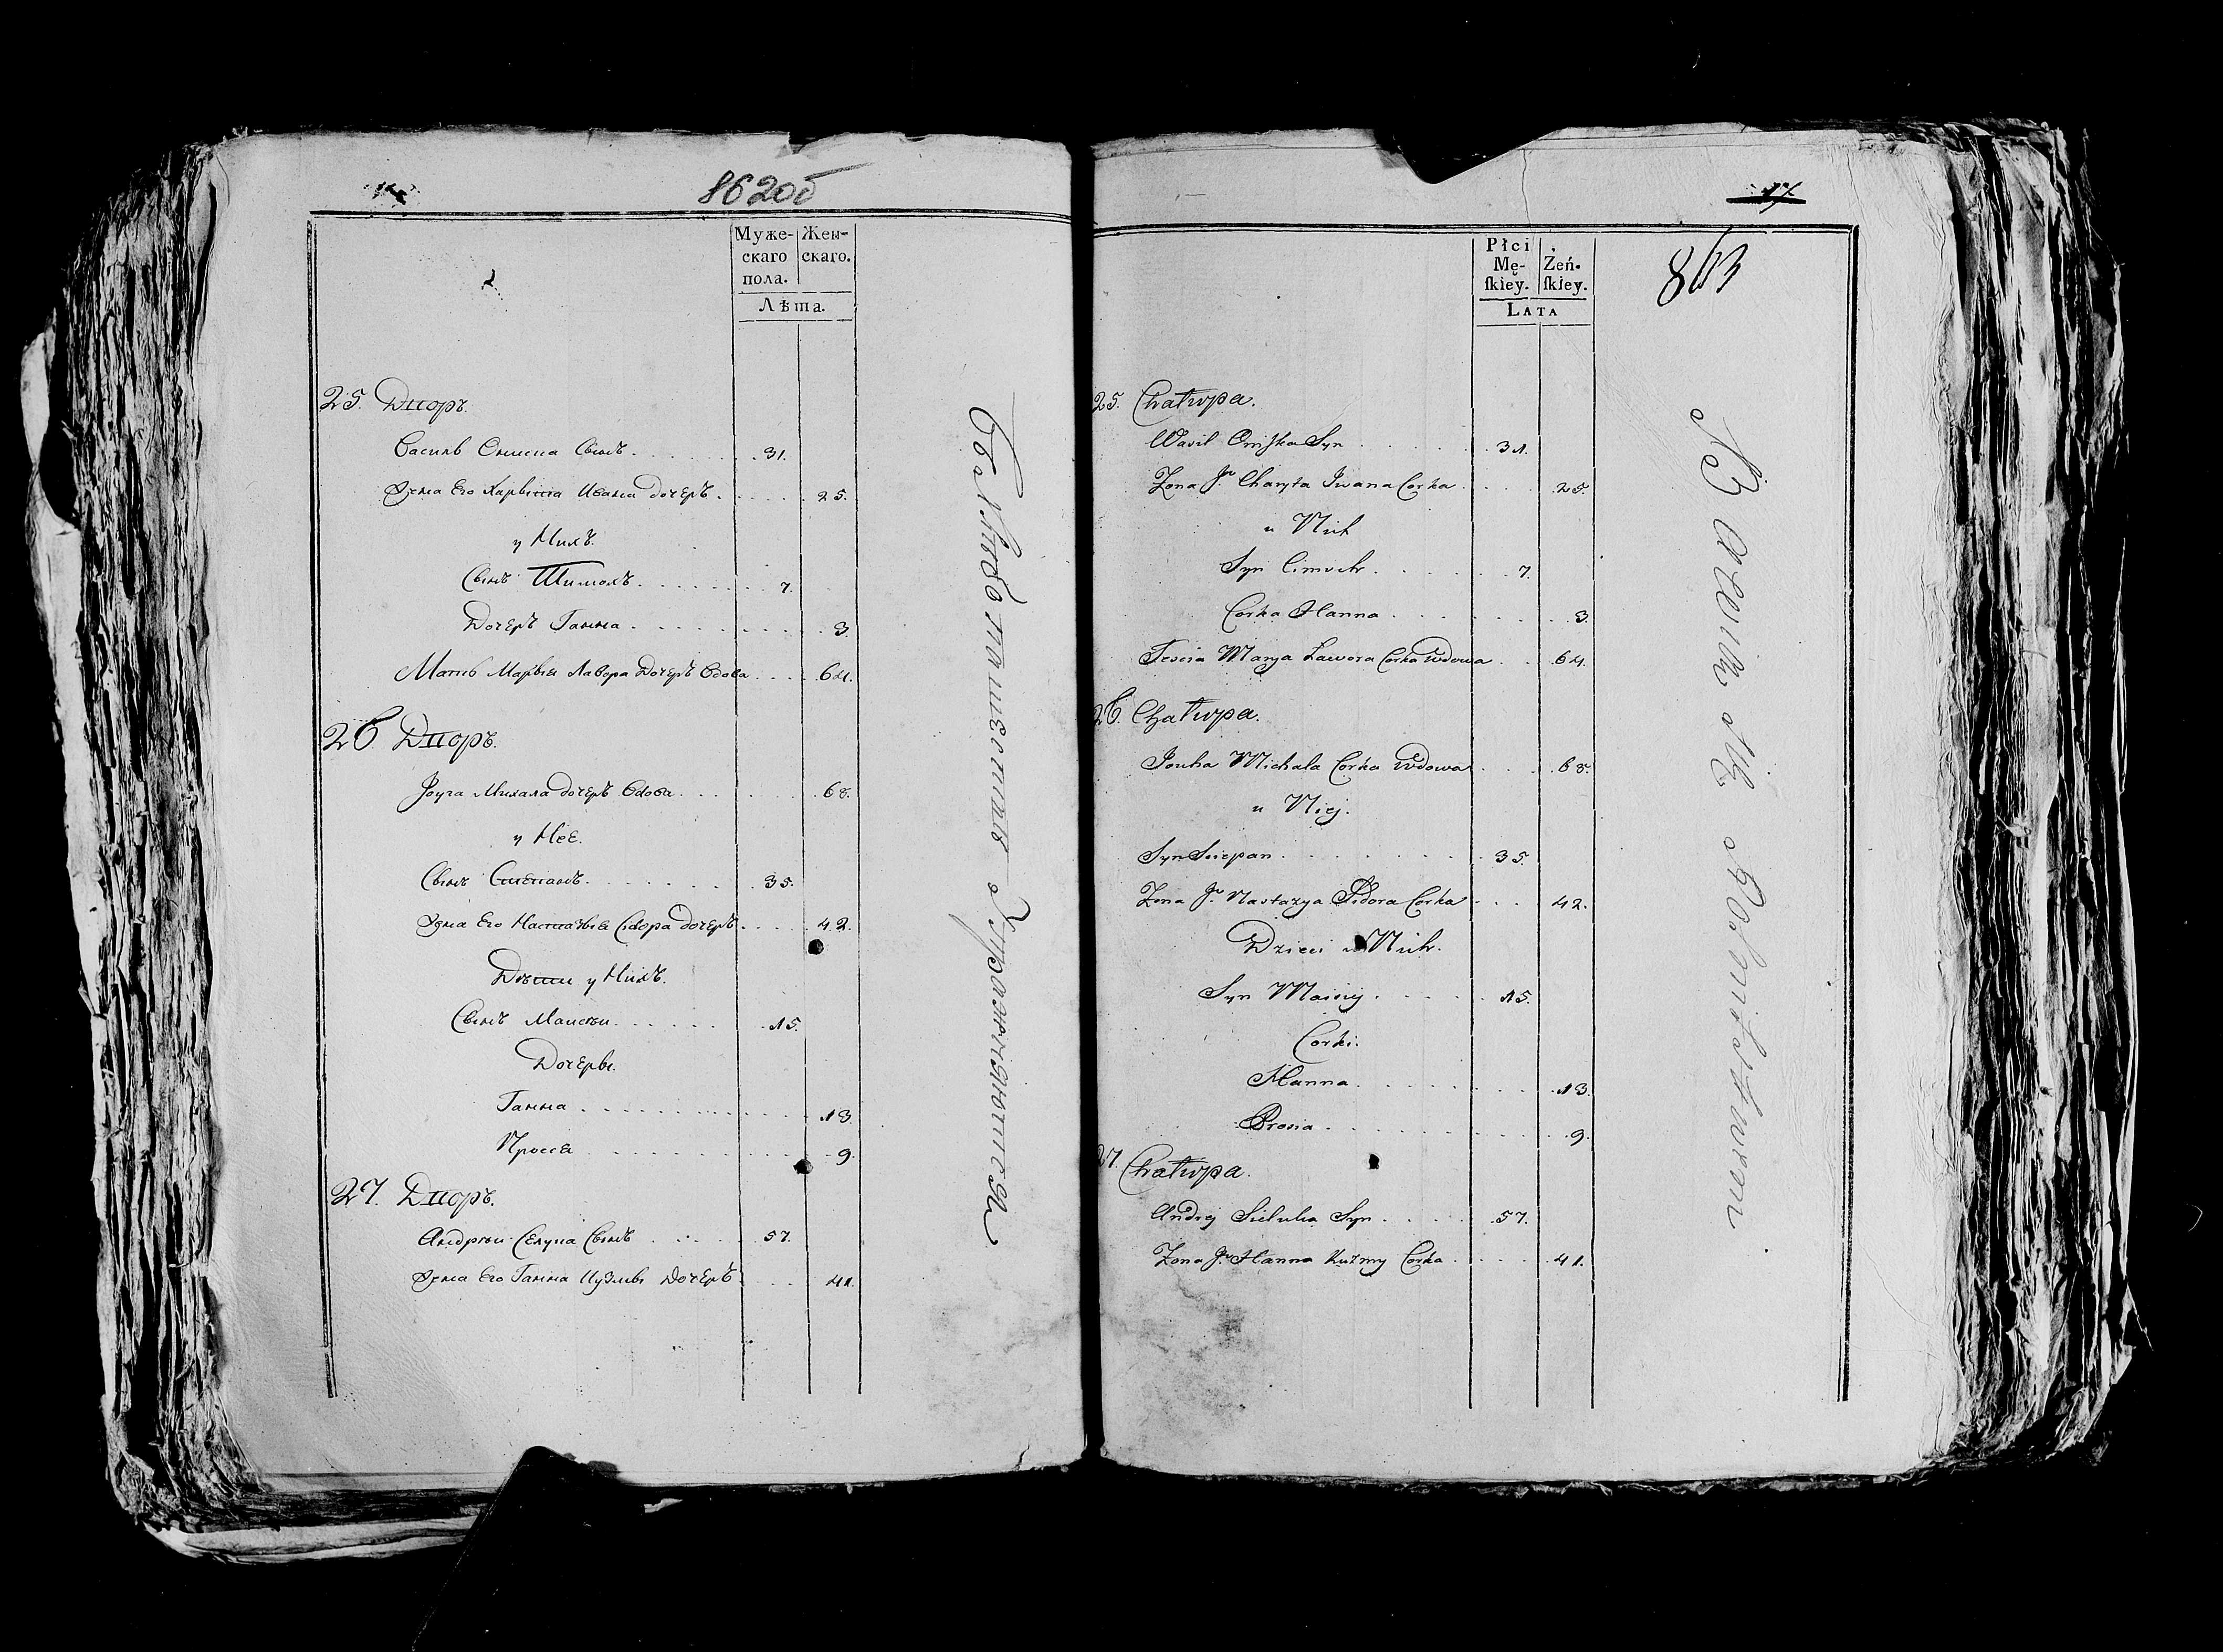 862об
Муже- Жен-
скаго скаго.
пола.
Лѣта.
25. Дворъ.
Василь Онишка Сынъ 31.
Жена Его Харыта Ивана дочеръ 25.
у Нихъ.
Сынъ Тимохъ 7.
Дочеръ Ганна 3.
Мать Марыя Лавора Дочеръ Вдова 64.
26 Дворъ.
Михала дочеръ Вдова 68.
у Нее.
Сынъ Степанъ 35.
Жена Его Настазыя Сидора дочеръ 42.
Дѣти у Нихъ.
Сынъ Маисѣи 15.
Дочеры.
Ганна 13.
Прося 9.
27. Дворъ.
Андрѣи Сынъ 57.
Жена Его Ганна Кузмы Дочеръ 41.
Хлѣбопашествѣ Упражняются
17
863
Płci Żeń-
Mę- ſkiey.
ſkiey.
Lata
25. Chatupa.
Wasil Oniszka Syn 31.
Zona Jº Charyta Iwana Corka 25.
u Nich
Syn Cimoch 7.
Corka Hanna 3.
Teścia Marya Ławora Corka Wdowa 64.
26. Chatupa.
Michala Corka Wdowa 68.
u Niej.
Syn Sciepan 35.
Zona Jº Nastazya Sidora Corka 42.
Dzieci u Nich.
Syn Maisiej 15.
Corki.
Hanna 13.
Prosia 9.
27. Chatupa.
Andrej Sieluka Syn 57.
Zona Jº Hanna Kuzmy Corka 41.
Rolnictwem